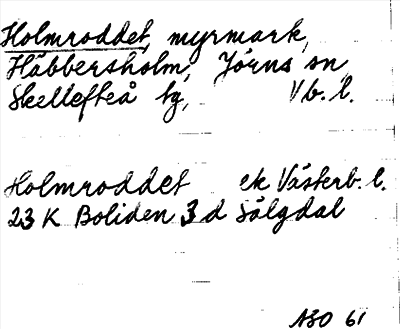 Holmroddet, myrmark,
Häbbersholm, Jörns sn,
Skellefteå tg, Vb. l.
Holmroddet ek Västerb. l.
23 K Boliden 3 d Sälgdal
ASO 61